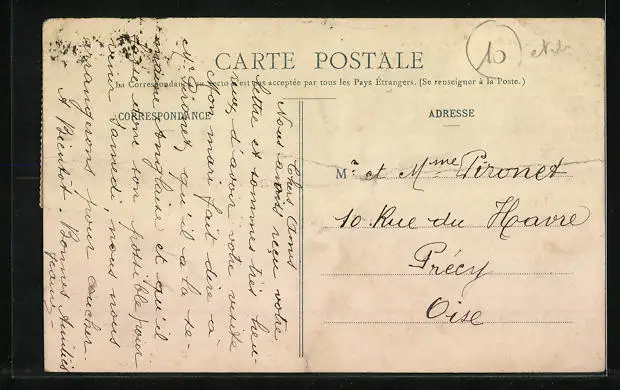 CARTE POSTALE
La Correspondance au recto n'est pas acceptée par tous les Pays Étrangers. (Se renseigner à la Poste.)
CORRESPONDANCE
ADRESSE
10
Chers Amis
Nous avons reçu votre
lettre et sommes très heu-
reux d'avoir votre visite
Mon mari fait dire à
Mr Pironet qu'il a la se-
maine anglaise et qu'il
fasse son possible pour
venir Samedi, nous nous
arrangerons pour coucher
A Bientôt. Bonnes Amitiés
Mr et Mme Pironet
10 Rue du Havre
Précy
Oise